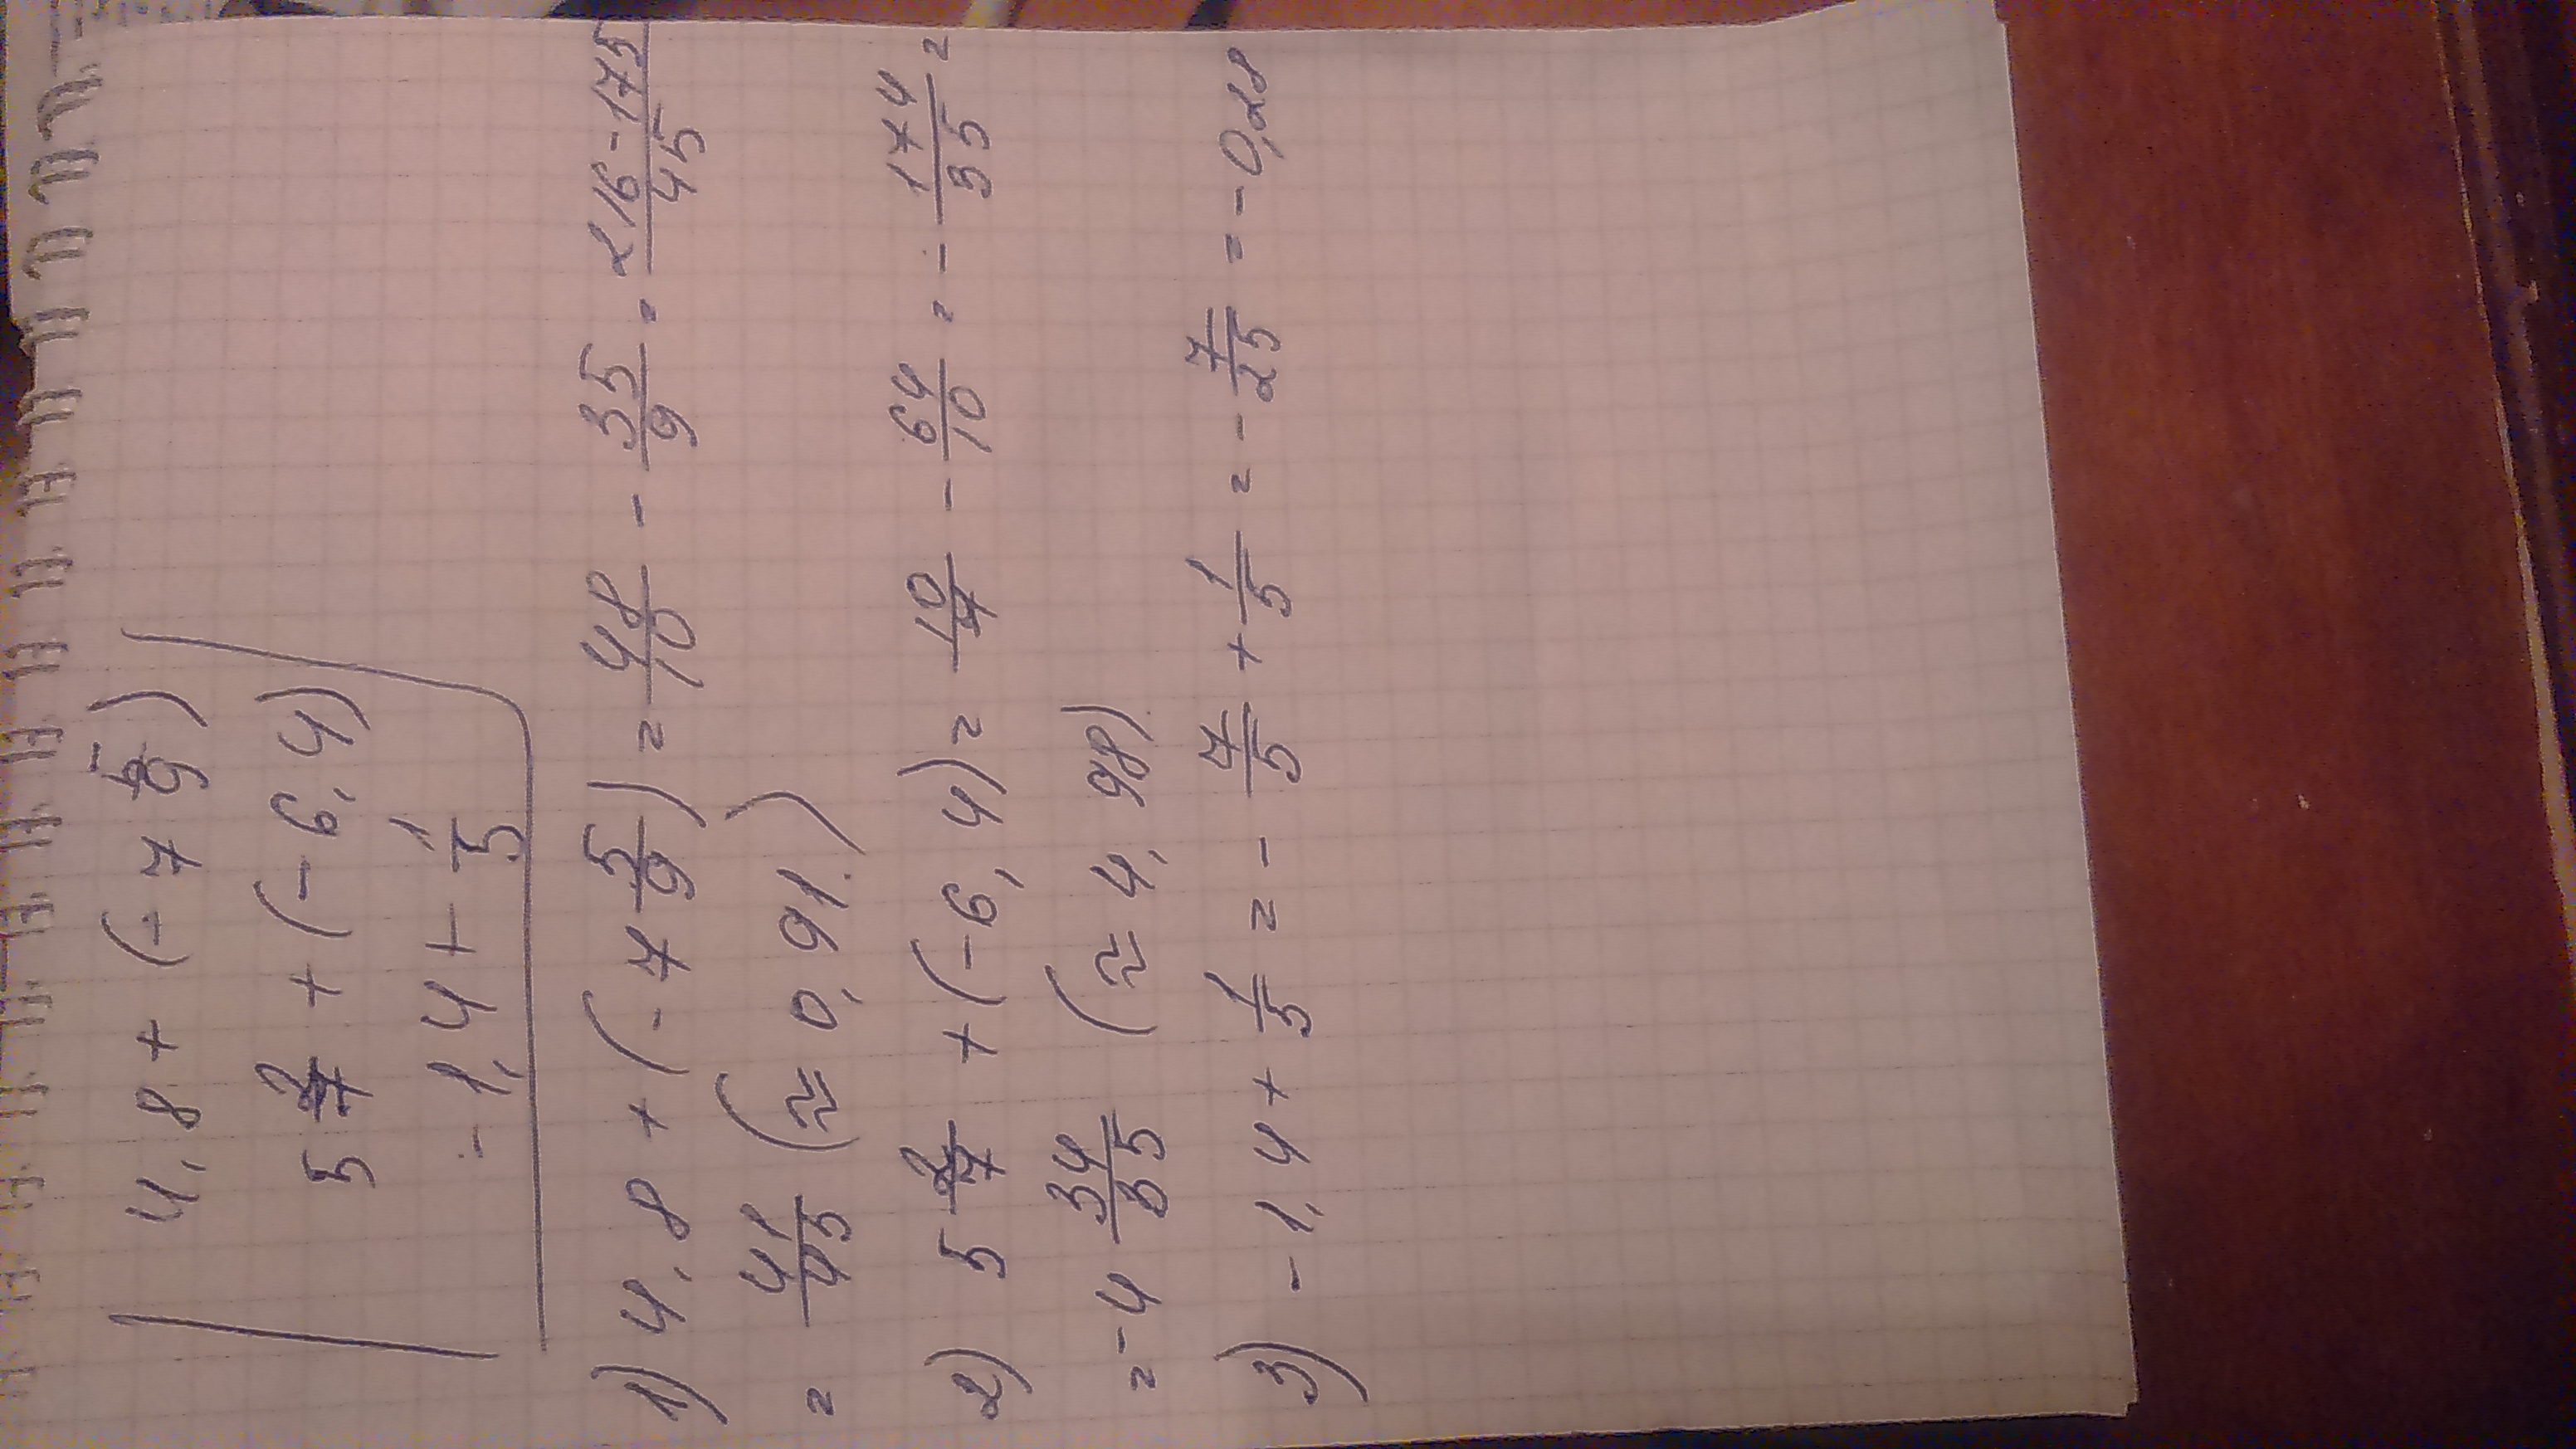 4,8 + (-7 5/9)
5 2/7 + (-6,4)
-1,4 + 1/5
1) 4,8 + (-7 5/9) = 48/10 - 35/9 = 216-175/45
= 41/45 (≈ 0,91.)
2) 5 2/7 + (-6,4) = 10/7 - 64/10 = - 174/35 =
= -4 34/35 (≈ 4,98)
3) -1,4 + 1/5 = - 7/5 + 1/5 = - 7/25 = -0,28